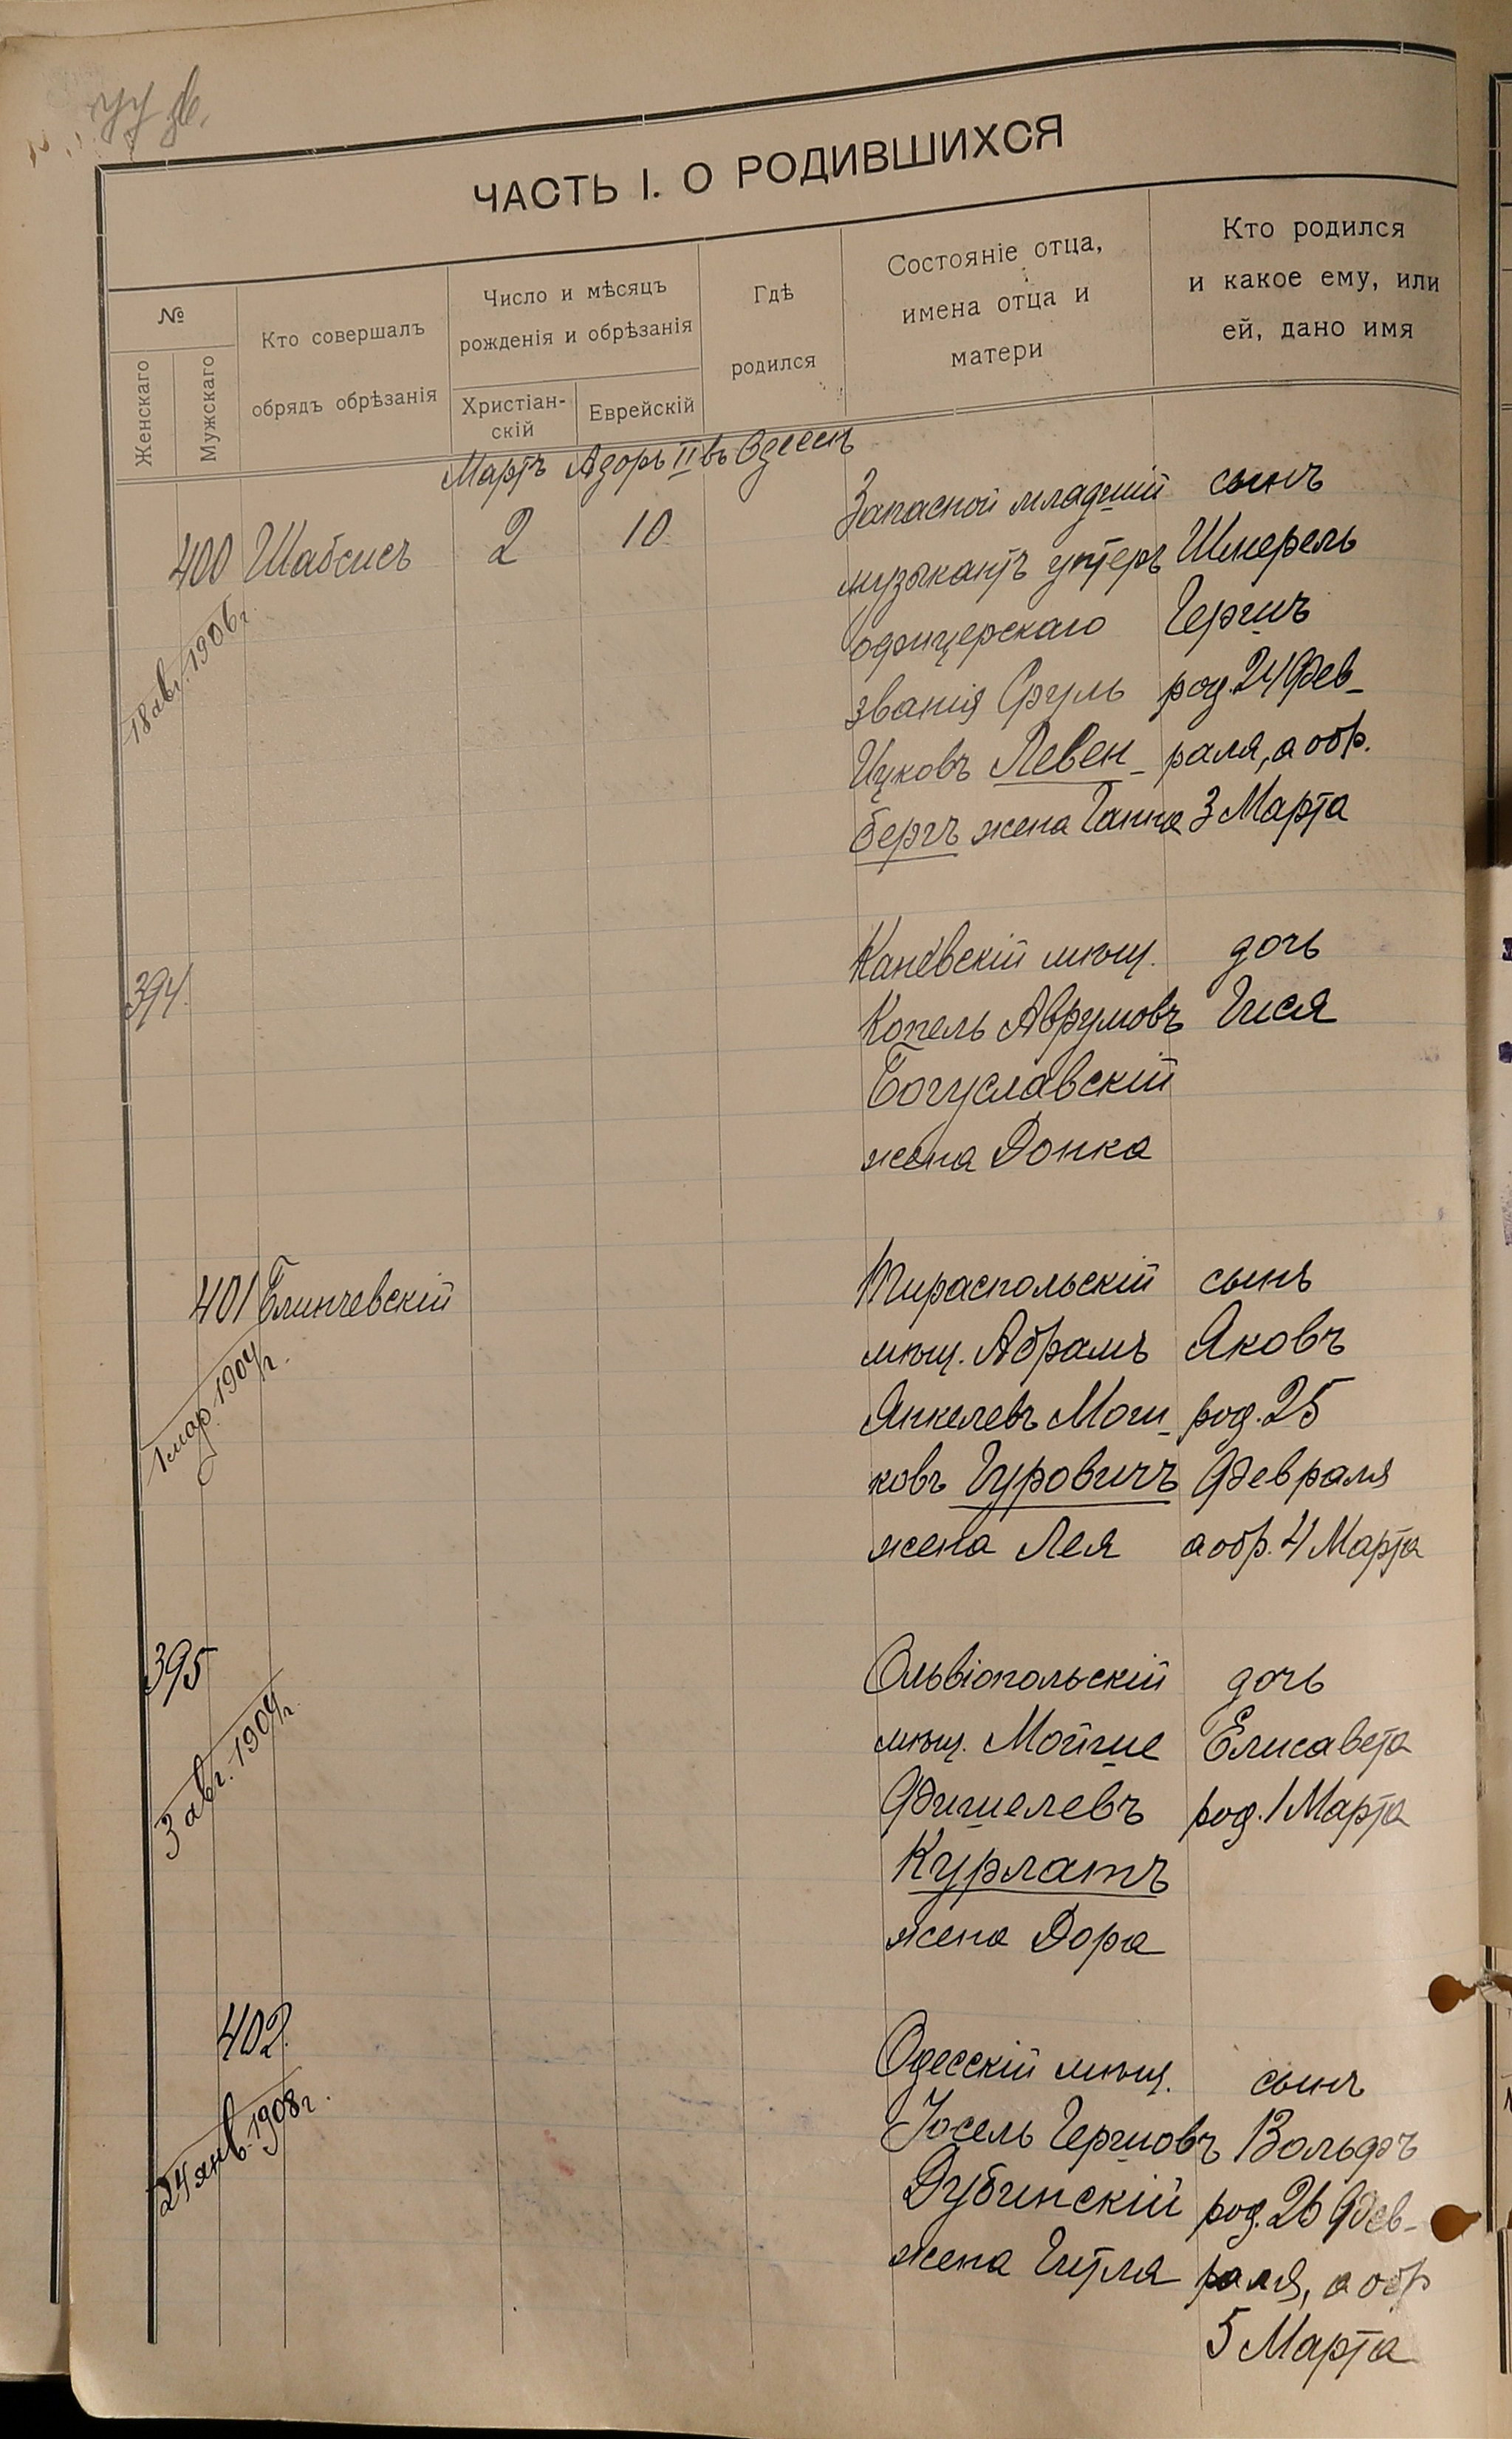 ЧАСТЬ I. О РОДИВШИХСЯ
№
Женскаго
Мужскаго
Кто совершалъ
обрядъ обрѣзанія
Число и мѣсяцъ
рожденія и обрѣзанія
Христіан-
скій
Еврейскій
Гдѣ
родился
Состояніе отца,
имена отца и
матери
Кто родился
и какое ему, или
ей, дано имя
Мартъ Адоръ II въ Одессѣ
400 Шабсисъ 2 10
18 авг. 1906 г.
Запасной младшій
музыкантъ унтеръ
офицерскаго
званія Сруль
Ицковъ Левен-
бергъ жена Ганна
сынъ
Шмерель
Гершъ
род. 24 Фев-
раля, а обр.
3 Марта
394.
Каневскій мѣщ.
Копель Аврумовъ
Богуславскій
жена Донка
дочь
Гися
401 Блинчевскій
1 мар. 1904 г.
Тираспольскій
мѣщ. Абрамъ
Янкелевъ Мош-
ковъ Гуровичъ
жена Лея
сынъ
Яковъ
род. 25
Февраля
а обр. 4 Марта
395
3 авг. 1904 г.
Ольвіопольскій
мѣщ. Мойше
Фишелевъ
Курлатъ
жена Дора
дочь
Елисавета
род. 1 Марта
402.
24 янв. 1908 г.
Одесскій мѣщ.
Іосель Гершовъ
Дубинскій
жена Гитля
сынъ
Вольфъ
род. 26 Фев-
раля, а обр
5 Марта